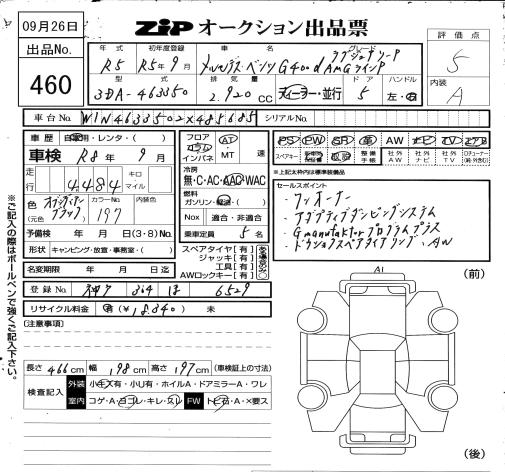 09月26日
ZiP オークション出品票
出品No.
460
年式 初年度登録 車名 グレード
R5 R5年9月 メルセデス・ベンツ G400d ラグジュアリーP AMGラインP
型式 排気量 ドア ハンドル
3DA-463350 2.920cc ディーラー・並行 5 左・右
評価点
5
内装
A
車台No. W1N4633502X485685 シリアルNo.
車歴 自家用・レンタ・( )
車検 R8年9月
走行 4,484 キロ マイル
色 オブシディアンブラック (元色 ) カラーNo. 197 内装色
予備検 年 月 日(3・8)No.
形状 キャンピング・放壇・事務室・( )
名変期限 年 月 日迄
フロア コラム インパネ AT MT 速
冷房 無・C・AC・AAC・WAC
燃料 ガソリン・軽油・( )
Nox 適合・非適合
乗車定員 5名
スペアタイヤ[有]
ジャッキ[有]
工具[有]
AWロックキー[有]
PS PW SR 革 AW ナビ TV エアB
スペアキー 取説 整備手帳 社外AW 社外ナビ 社外TV
※上記太枠内は標準装備品
セールスポイント
・ワンオーナー
・アダプティブダンピングシステム
・G manufakturプログラムプラス
・ドラウトスペアタイヤリング・AW
登録No. 神戸 364 ほ 6529
リサイクル料金 有(¥18,340) 未
[注意事項]
※ご記入の際はボールペンで強くご記入下さい。
(前)
A1
長さ466cm 幅198cm 高さ197cm (車検証上の寸法)
検査記入 外装 小キズ有・小U有・ホイルA・ドアミラーA・ワレ
室内 コゲ・A・ヨゴレ・キレ・スレ FW トビ石・A・X要ス
(後)